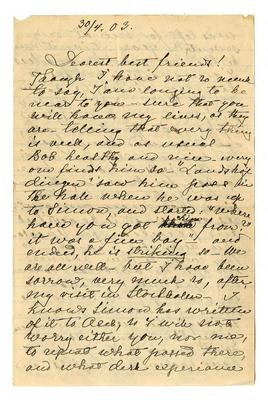 30/4. 03.
Dearest best friend!
Though I have not so much
to say, I am longing to be
near to you – sure that you
will have my lines, as they
are telling that every thing
is well, and as usual
Bob healthy and nice. every
one finds him so – "Landshöf
dingen" saw him pass in
the hall when he was up
to Simon, and : "where
have you got from"
it was a fine boy", and
indeed, he is striking so – We
are all well – but I have been
sorrow, very much so, after
my visit in Stockholm – I
know Simon has written
of it to , so I will not
worry either you, nor me,
to repeat what passed there,
and what dark experience